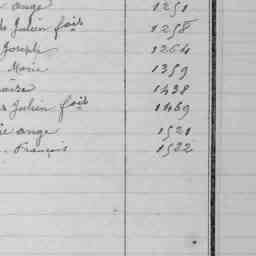 ange 1251
Julien fois 1258
Joseph 1264
Marie 1359
1438
Julien fois 1459
ange 1521
François 1522